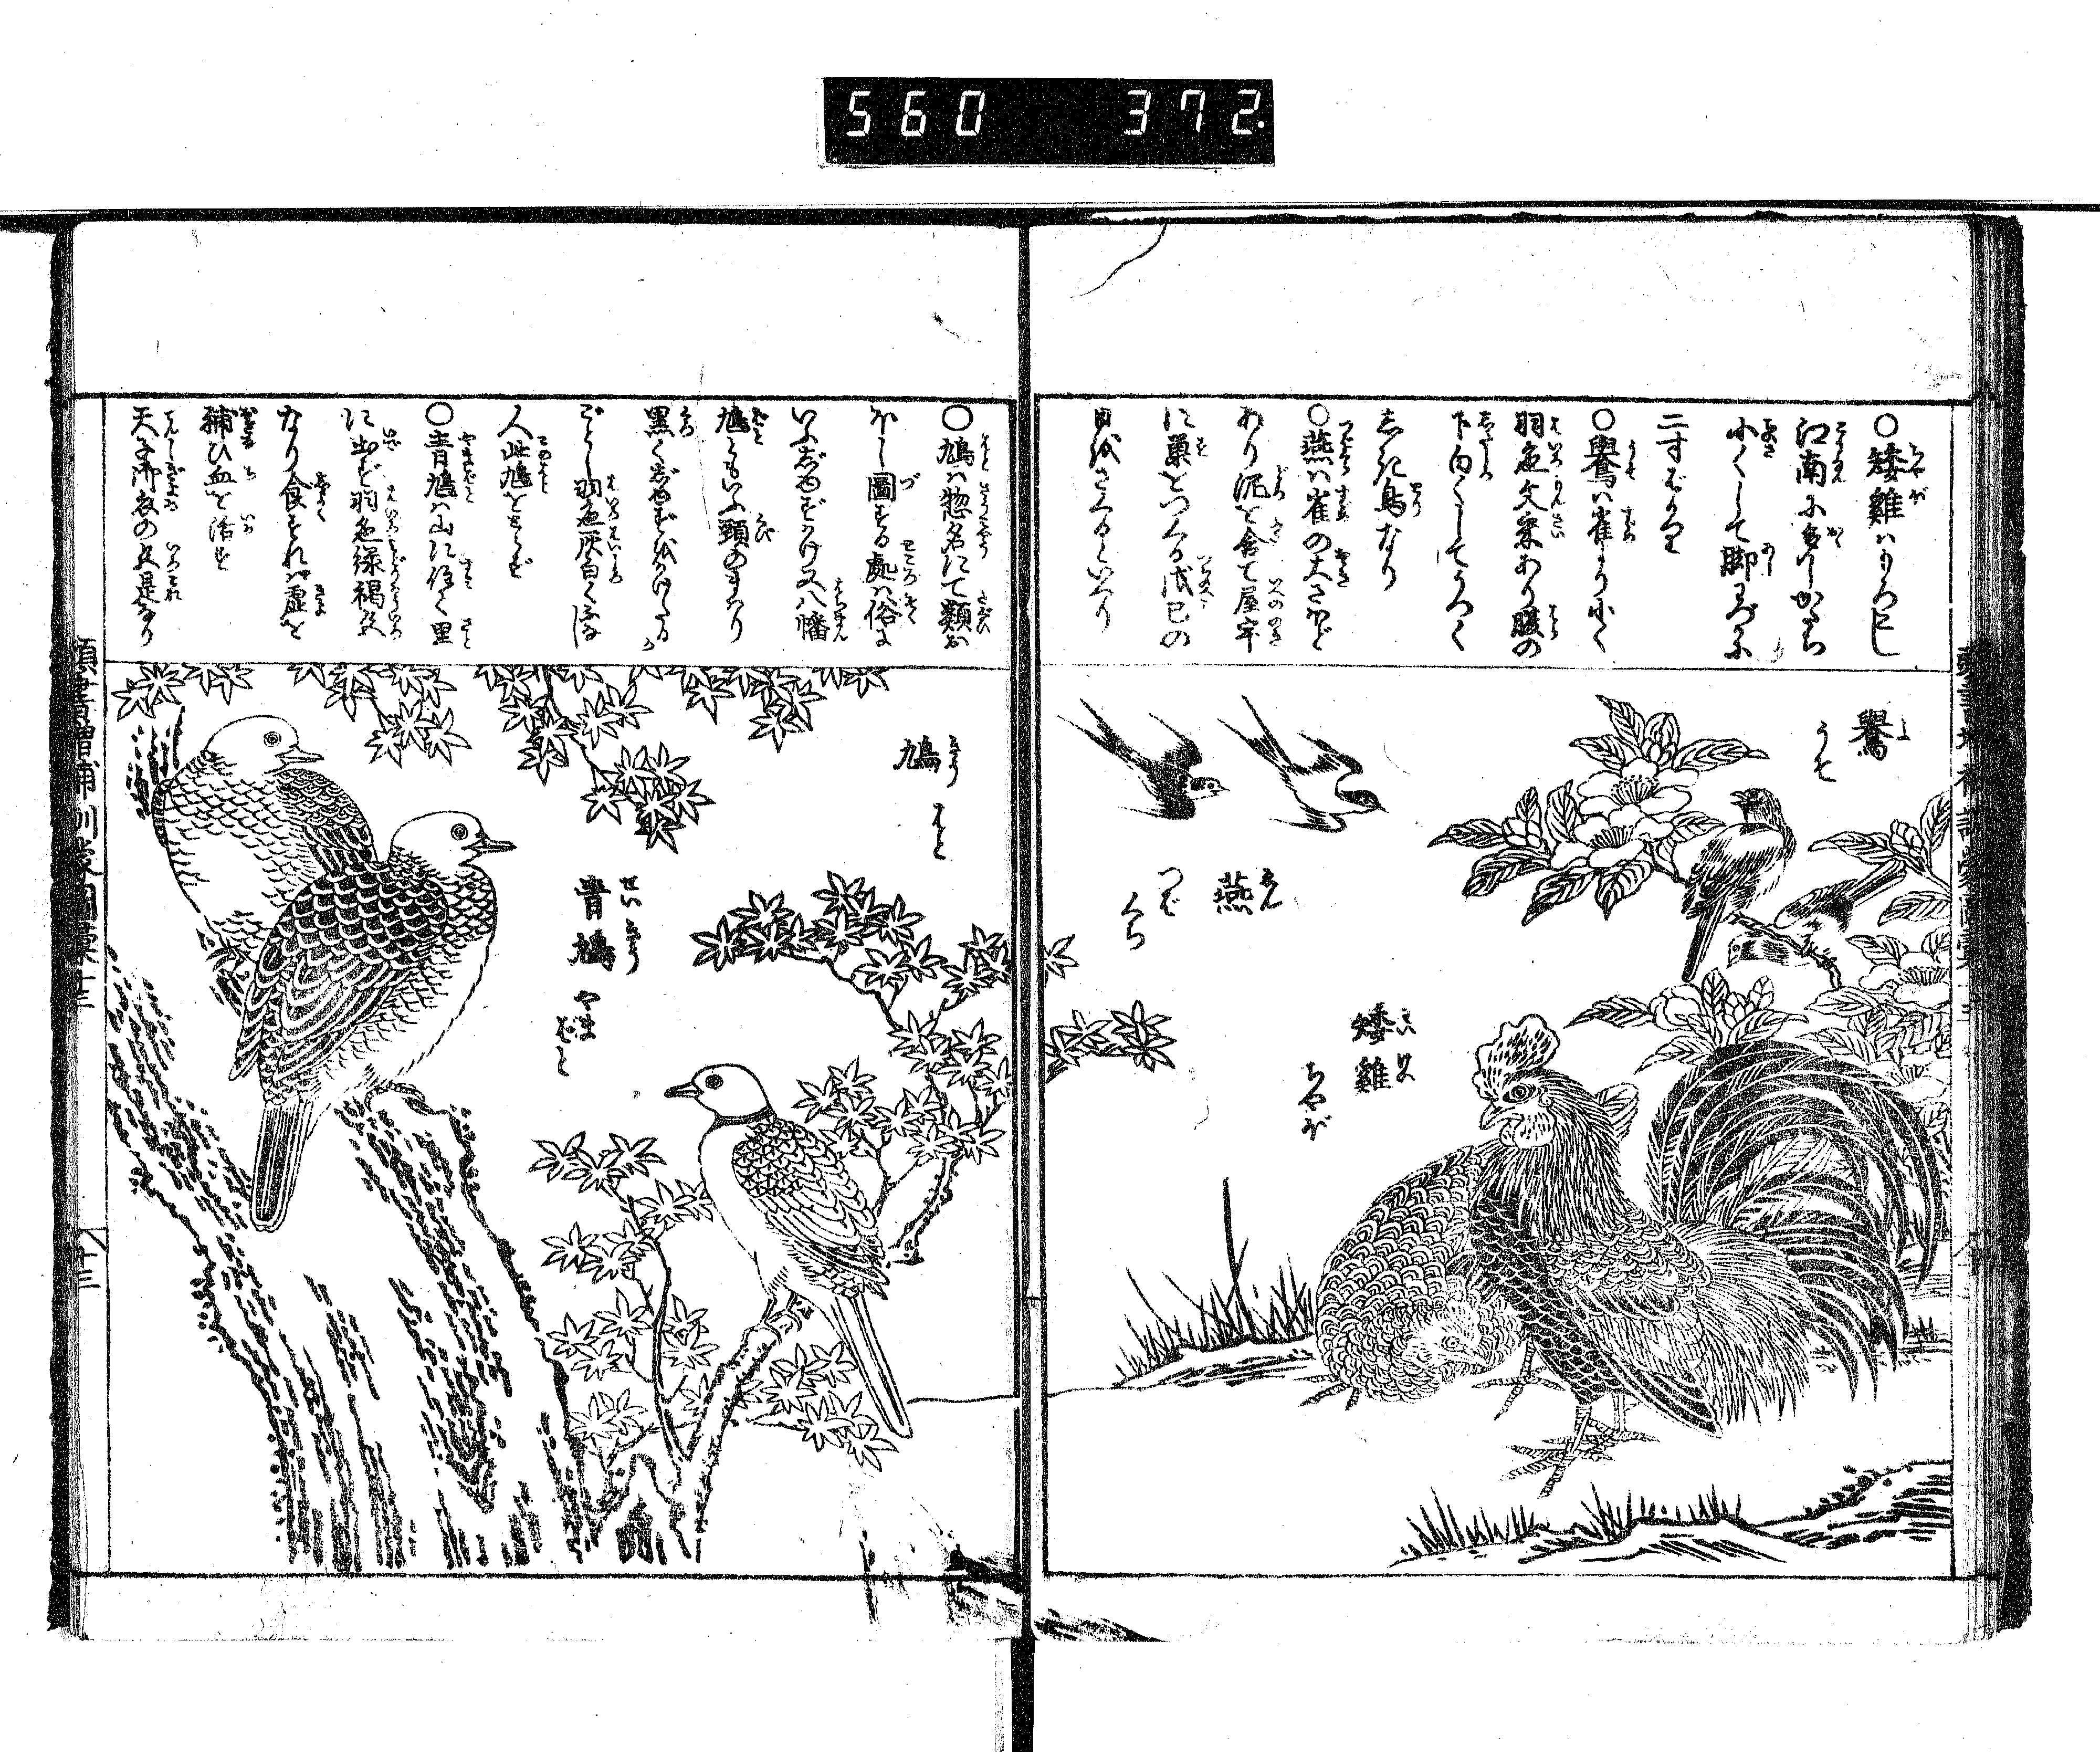 560 372.
○矮雞ハもろこし
江南に多しかたち
小くして脚わづかに
二寸ばかり
○鷽ハ雀より小く
羽色文彩あり腹の
下白くしてうつく
しき鳥なり
○燕ハ雀の大さほど
あり泥を含て屋宇
に巣をつくる戊己の
日をさくるといへり
鷽
うそ
燕
つばくら
矮雞
ちやぼ
○鳩ハ惣名にて類お
ほし圖する処ハ俗に
いふじゆずかけ又八幡
鳩ともいふ頸のまハり
黒くじゆずをかけたる
ごとし羽色灰白くふる
人此鳩をよろこぶ
○青鳩ハ山に住て里
に出ず羽色緑褐色
なり食すれバ虚を
補ひ血を活す
天子御衣の色是なり
鳩
はと
青鳩
やまばと
頭書増補訓蒙圖彙十三
十三